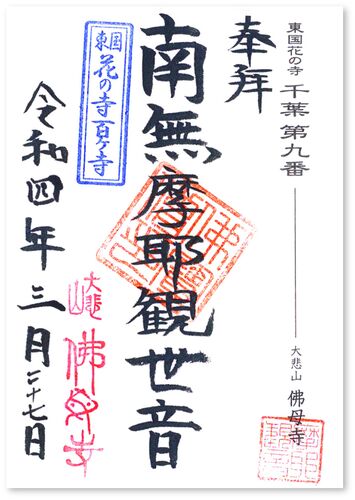 東国花の寺 千葉 第九番
大悲山 佛母寺
奉拝
南無摩耶観世音
東国
花の寺百ヶ寺
大悲山
佛母寺
令和四年三月二十七日